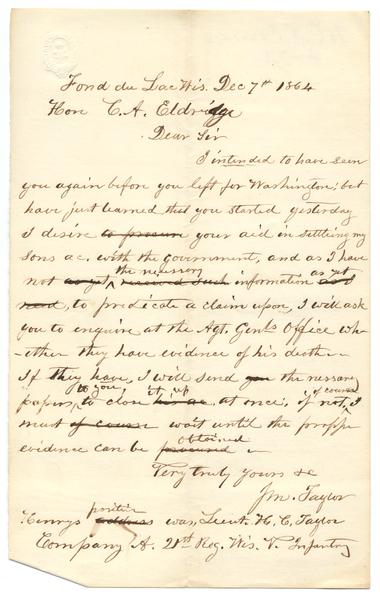 Fond du Lac Wis. Dec 7th 1864
Hon C. A. Eldridge
Dear Sir
I intended to have seen
you again before you left for Washington; but
have just learned that you started yesterday
I desire to procure your aid in settleing my
sons ac. with the Government, and as I have
the necessary as yet
not as yet received such information
need, to predicate a claim upon, I will ask
you to enquire at the Agt. Genls Office wh-
ether they have evidence of his death-
If they have, I will send you the nessary
to you, it up if course
papers, to close his ac at once; if not, I
must of course wait until the propper
obtained
evidence can be procured -
Very truly yours &c
Jno. Taylor
position
Henrys address was, Lieut. H. C. Taylor
Company A. 21st Reg. Wis. V. Infantry